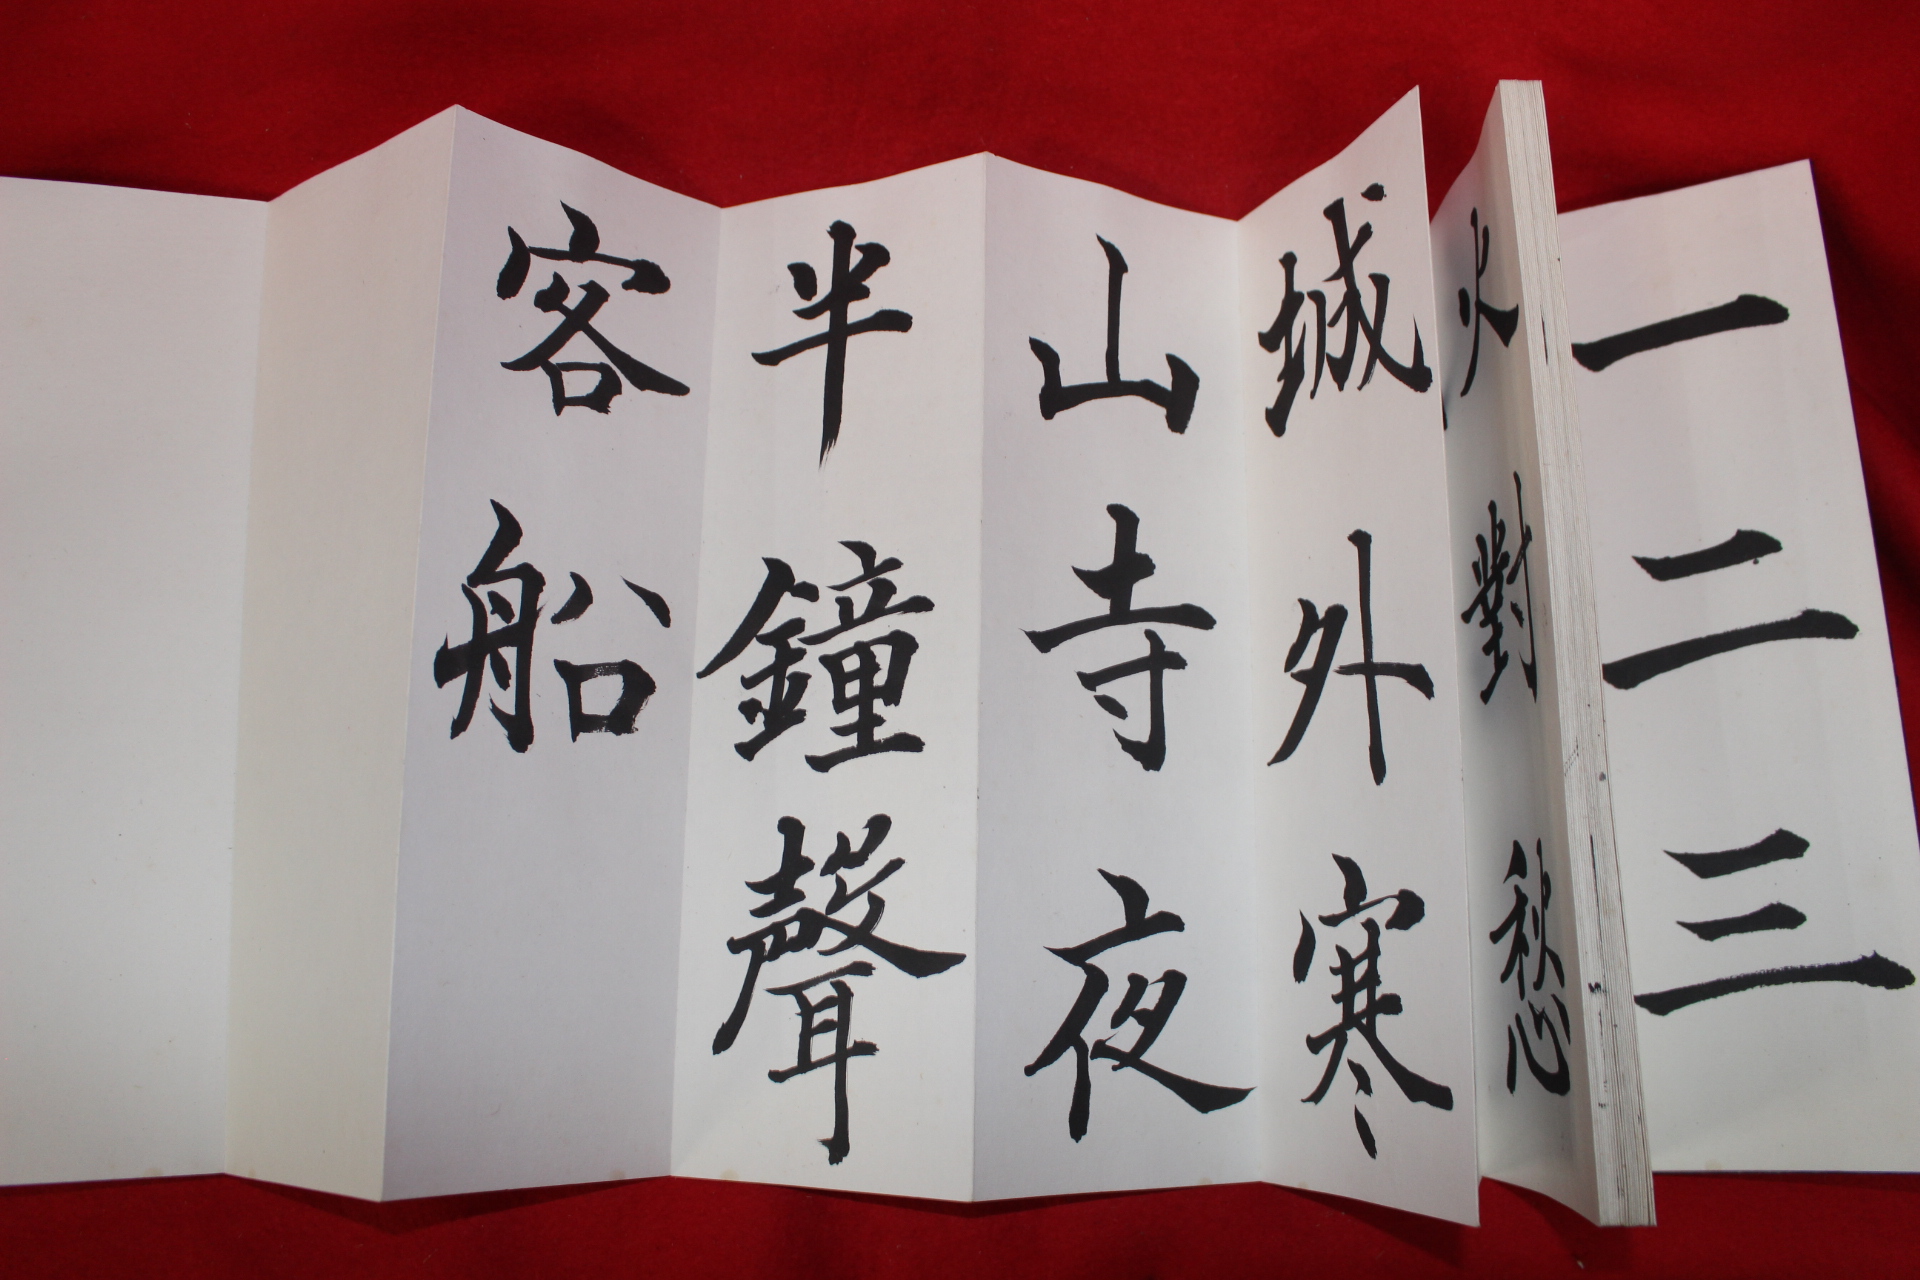 一二三
火對愁
城外寒
山寺夜
半鐘聲
客船